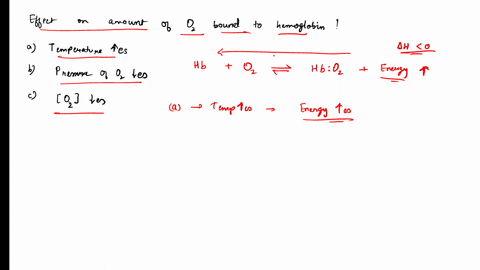 Effect on amount of O₂ bound to hemoglobin?
a) Temperature ↑es
b) Pressure of O₂ ↓es
c) [O₂] ↓es
ΔH < 0
Hb + O₂ ⇌ Hb:O₂ + Energy ↑
(a) → Temp ↑es → Energy ↑es